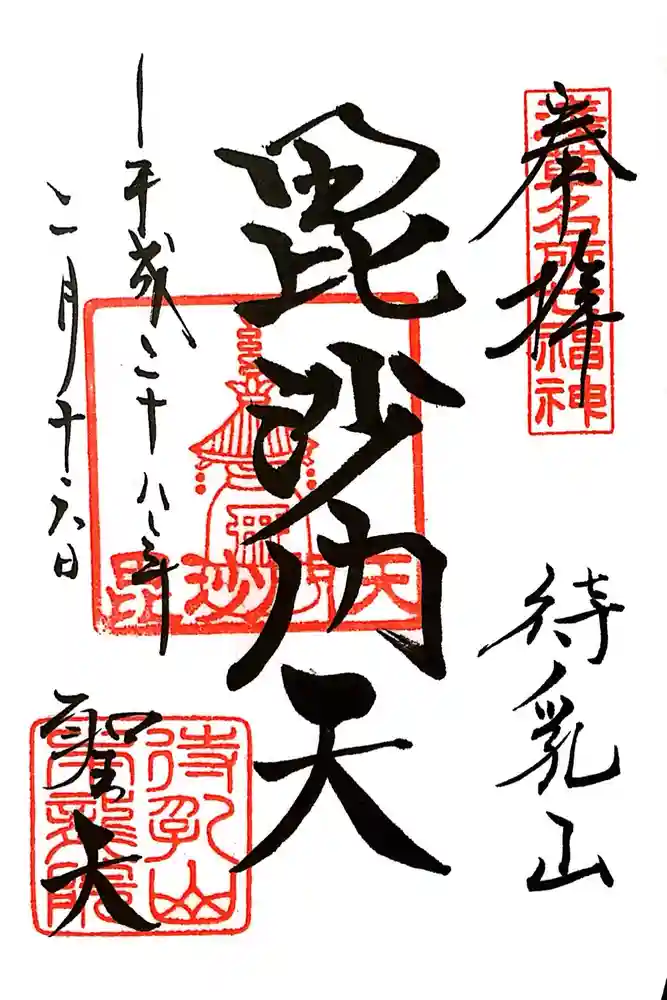 奉拝
浅草名所七福神
待乳山
毘沙門天
毘沙門天
平成二十八年
二月十六日
聖天
待乳山
本龍院